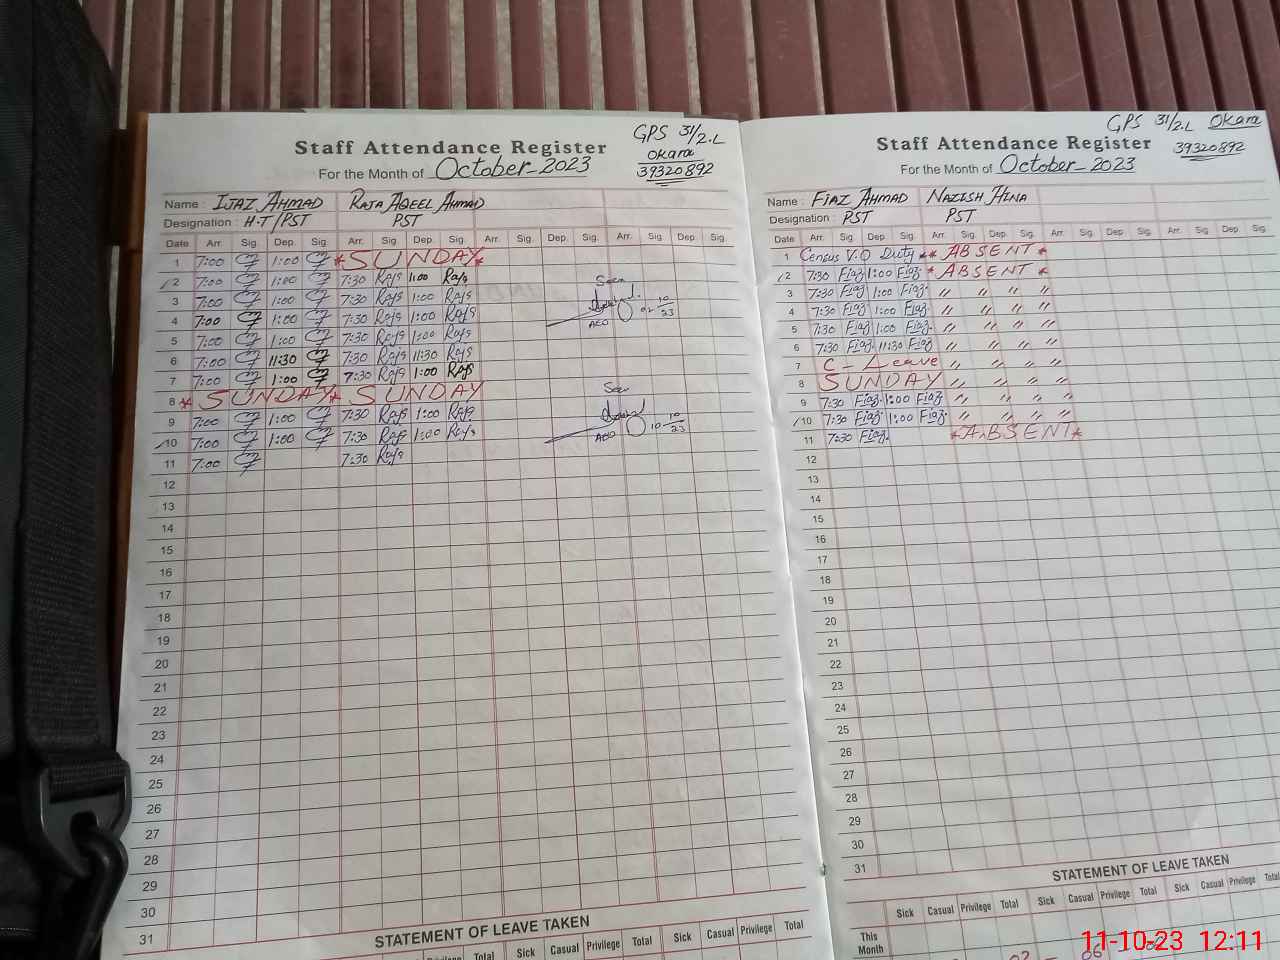 GPS 31/2.L
Okara
39320892
Staff Attendance Register
For the Month of October-2023
Name : IJAZ AHMAD RAJA AQEEL AHMAD
Designation : H.T/PST PST
Date Arr. Sig. Dep. Sig. Arr. Sig. Dep. Sig. Arr. Sig. Dep. Sig. Arr. Sig. Dep. Sig.
1 7:00 1:00 * SUNDAY *
2 7:00 1:00 7:30 1:00 Seen
3 7:00 1:00 7:30 1:00 02 10/23
4 7:00 1:00 7:30 1:00 AEO
5 7:00 1:00 7:30 1:00
6 7:00 11:30 7:30 11:30
7 7:00 1:00 7:30 1:00
8 * SUNDAY * SUNDAY
9 7:00 1:00 7:30 1:00
10 7:00 1:00 7:30 1:00 AEO 10 10/23
11 7:00 7:30
12
13
14
15
16
17
18
19
20
21
22
23
24
25
26
27
28
29
30
31
STATEMENT OF LEAVE TAKEN
Total Sick Casual Privilege Total Sick Casual Privilege Total
GPS 31/2.L Okara
39320892
Staff Attendance Register
For the Month of October-2023
Name : FIAZ AHMAD NAZISH HINA
Designation : PST PST
Date Arr. Sig. Dep. Sig. Arr. Sig. Dep. Sig. Arr. Sig. Dep. Sig. Arr. Sig. Dep. Sig.
1 Census V.O Duty * * ABSENT *
2 7:30 Fiaz 1:00 Fiaz * ABSENT *
3 7:30 Fiaz 1:00 Fiaz. " " " "
4 7:30 Fiaz 1:00 Fiaz. " " " "
5 7:30 Fiaz 1:00 Fiaz. " " " "
6 7:30 Fiaz. 11:30 Fiaz " " " "
7 C-Leave " " " "
8 SUNDAY " " " "
9 7:30 Fiaz. 1:00 Fiaz. " " " "
10 7:30 Fiaz 1:00 Fiaz. " " " "
11 7:30 Fiaz. * ABSENT *
12
13
14
15
16
17
18
19
20
21
22
23
24
25
26
27
28
29
30
31
STATEMENT OF LEAVE TAKEN
Sick Casual Privilege Total Sick Casual Privilege Total Sick Casual Privilege Total
This Month
11-10-23 12:11